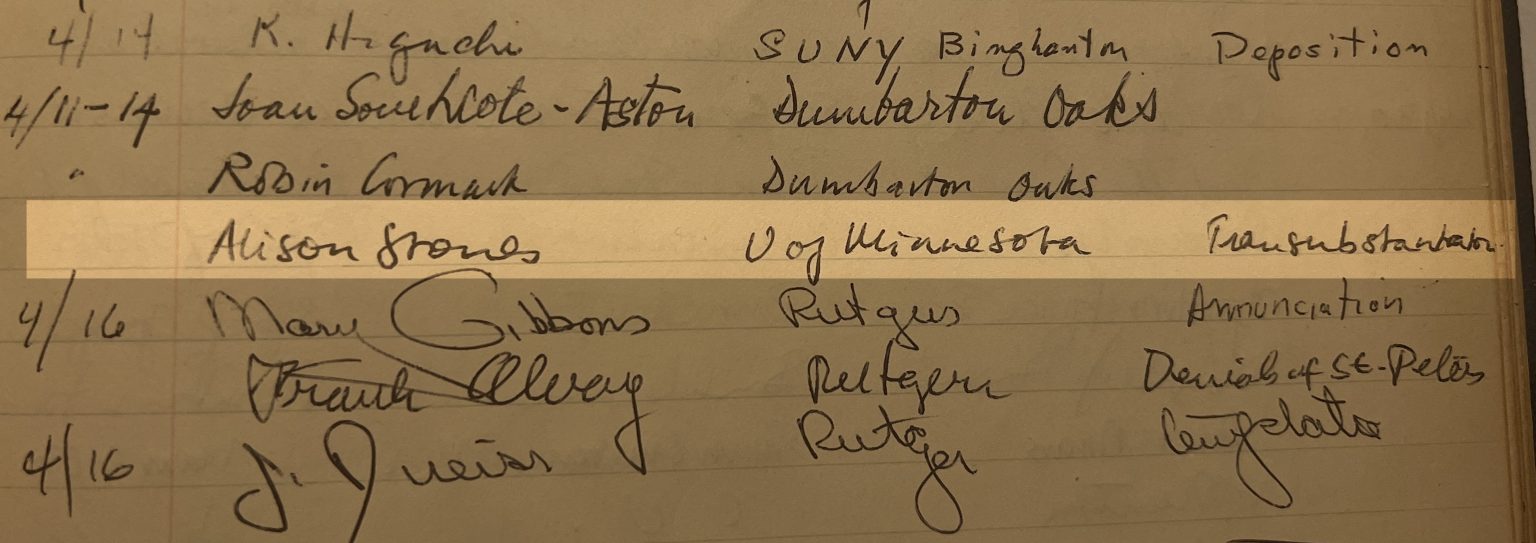 4/14 K. Higuchi SUNY Binghamton Deposition
4/11-14 Joan Southcote-Aston Dumbarton Oaks
" Robin Cormack Dumbarton Oaks
Alison Stones U of Minnesota Transubstantiation
4/16 Mary Gibbons Rutgers Annunciation
Frank Rutgers Denial of St. Peter
4/16 J. Rutgers